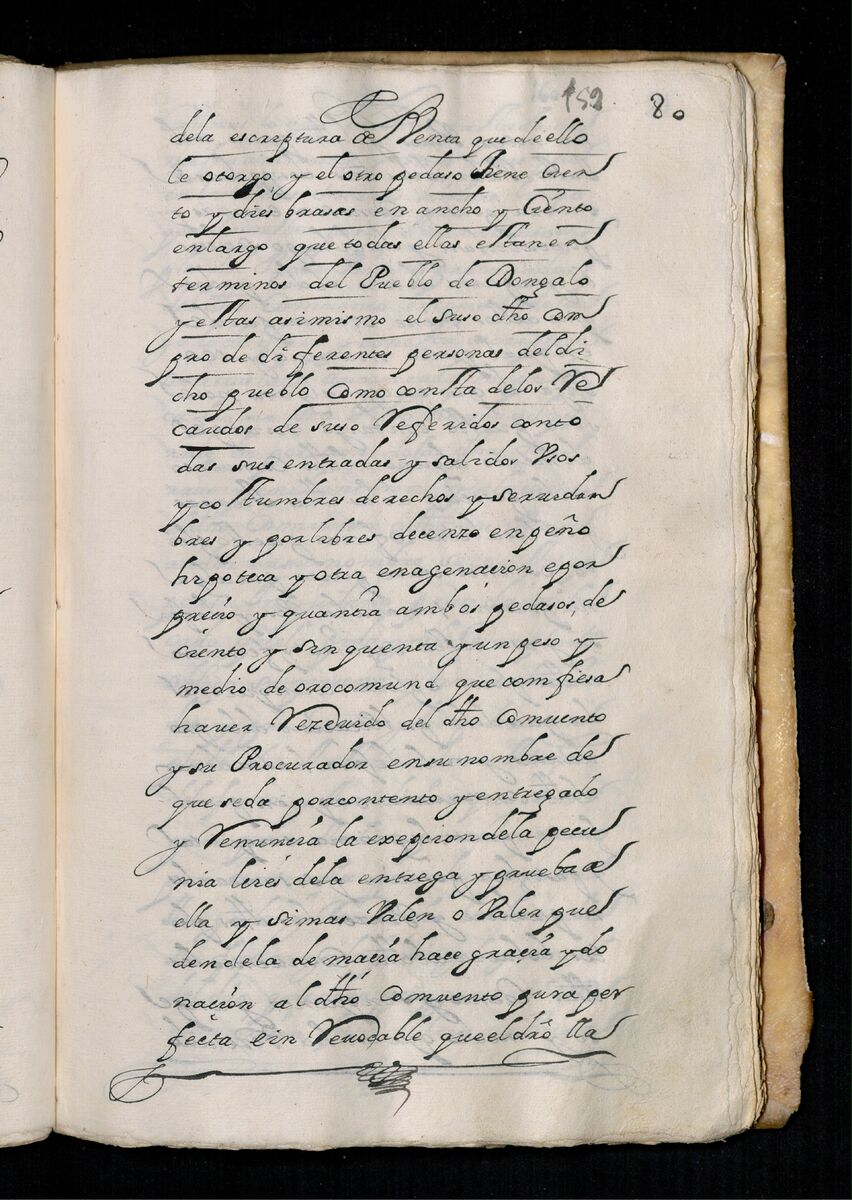 159 80
dela escriptura de Venta que de ello
le otorgò y el otro pedaso tiene Cien
to y dies brasas en ancho y Ciento
en largo que todas ellas estan en
terminos del Pueblo de Dongalo
y estas asimismo el suso dho Com
pro de diferentes personas del di
cho pueblo Como consta delos Re
caudos de suso Referidos con to
das sus entradas y salidos Vsos
y costumbres derechos y seruidun
bres y por libres de cenzo enpeño
hipoteca y otra enagenacion e por
precio y quantia ambos pedasos de
Ciento y sinquenta y un peso y
medio de oro comun que comfiesa
hauer Rezeuido del dho Comuento
y su Procurador en su nombre de
que se da por contento y entregado
y Renuncia la exepcion dela pecu
nia leies dela entrega y prueba de
ella y si mas Valen o Valer pue
den dela demacia hace gracia y do
nación al dho Comuento pura per
fecta e in Reuocable que el dro lla